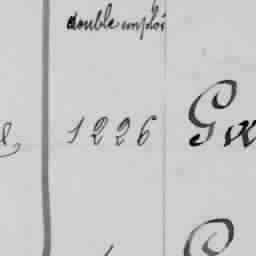 double emploi
1226 Ga